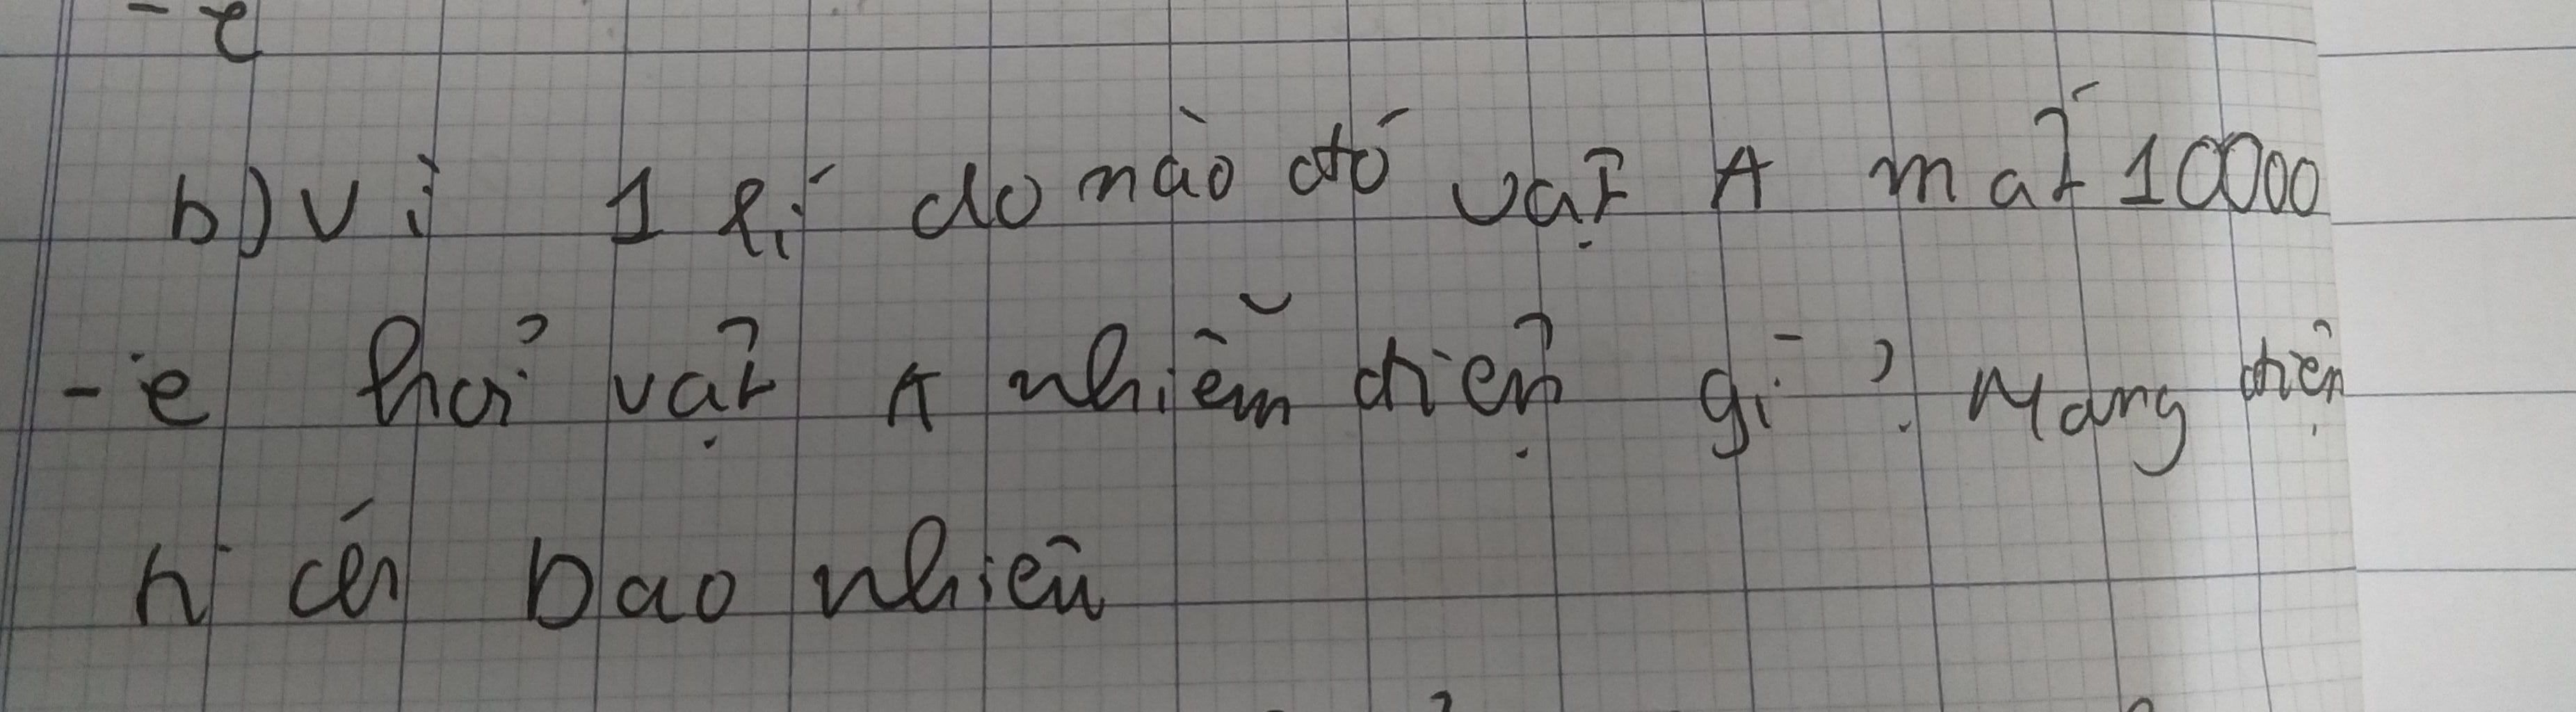 - e
b) vì 1 lí do nào đó vật A mất 10000
- e hỏi vật A nhiễm điện gì ? Mang điện
h cến bao nhiêu